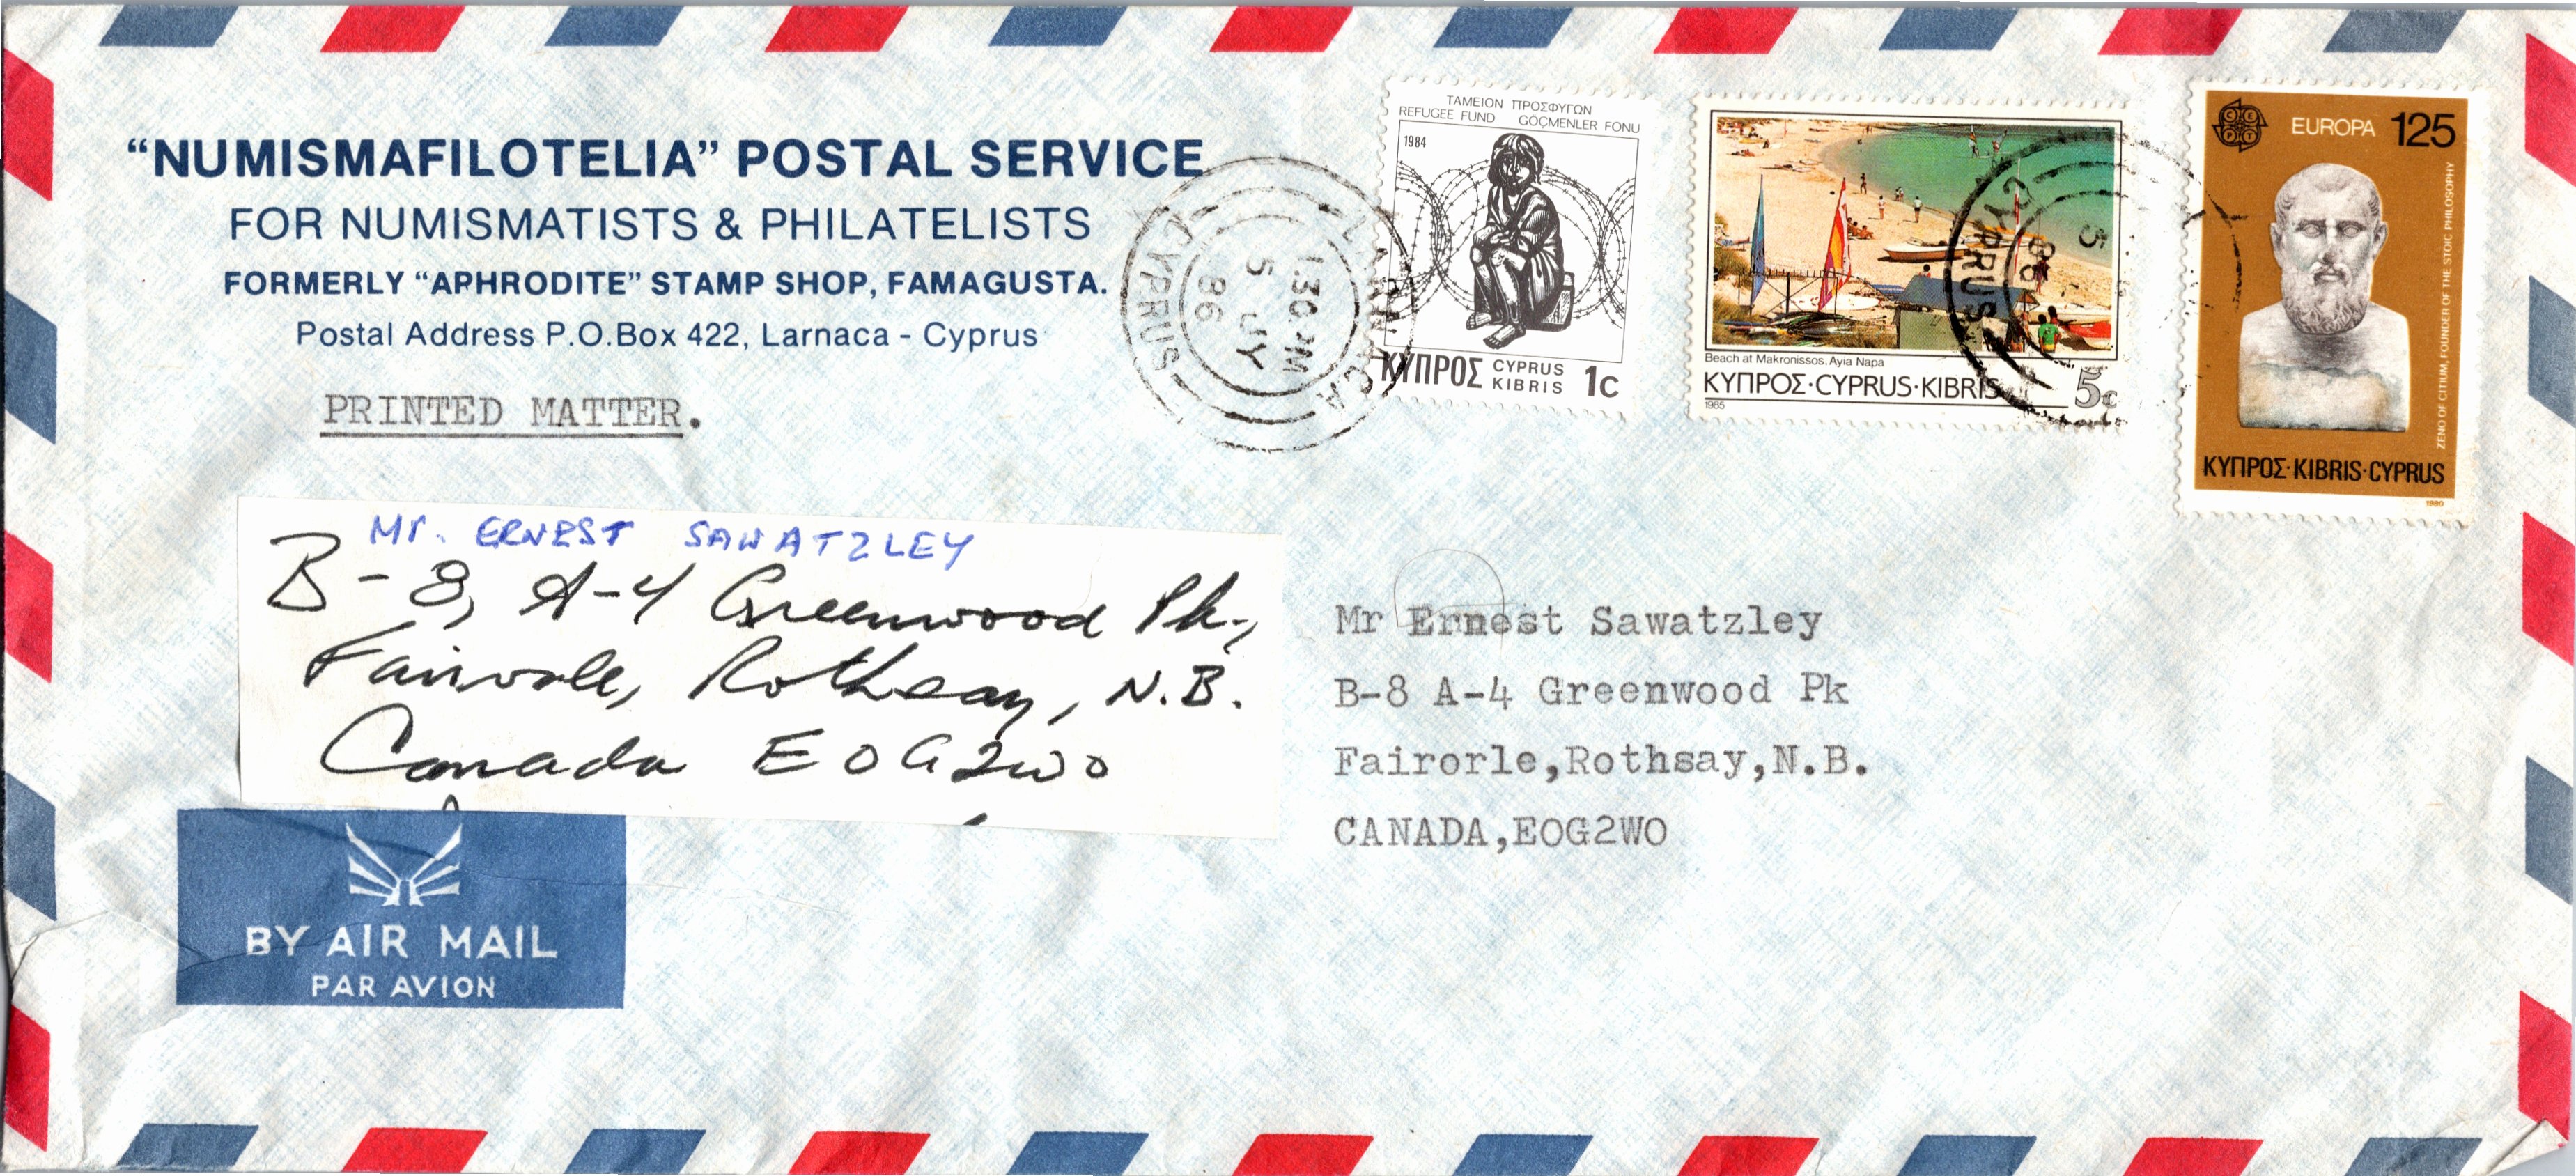 “NUMISMAFILOTELIA” POSTAL SERVICE
FOR NUMISMATISTS & PHILATELISTS
FORMERLY “APHRODITE” STAMP SHOP, FAMAGUSTA.
Postal Address P.O.Box 422, Larnaca - Cyprus
PRINTED MATTER.
LARNACA
1 30 PM
5 JY
86
CYPRUS
ΤΑΜΕΙΟΝ ΠΡΟΣΦΥΓΩΝ
REFUGEE FUND GÖÇMENLER FONU
1984
ΚΥΠΡΟΣ CYPRUS KIBRIS 1c
Beach at Makronissos, Ayia Napa
ΚΥΠΡΟΣ·CYPRUS·KIBRIS 5c
1985
5
86
CYPRUS
CEPT
EUROPA 125
ZENO OF CITIUM, FOUNDER OF THE STOIC PHILOSOPHY
ΚΥΠΡΟΣ·KIBRIS·CYPRUS
1980
Mr. ERNEST SAWATZLEY
B-8, A-4 Greenwood Pk.,
Fairvale, Rothsay, N.B.
Canada E0G2W0
Mr Ernest Sawatzley
B-8 A-4 Greenwood Pk
Fairorle,Rothsay,N.B.
CANADA,EOG2WO
BY AIR MAIL
PAR AVION